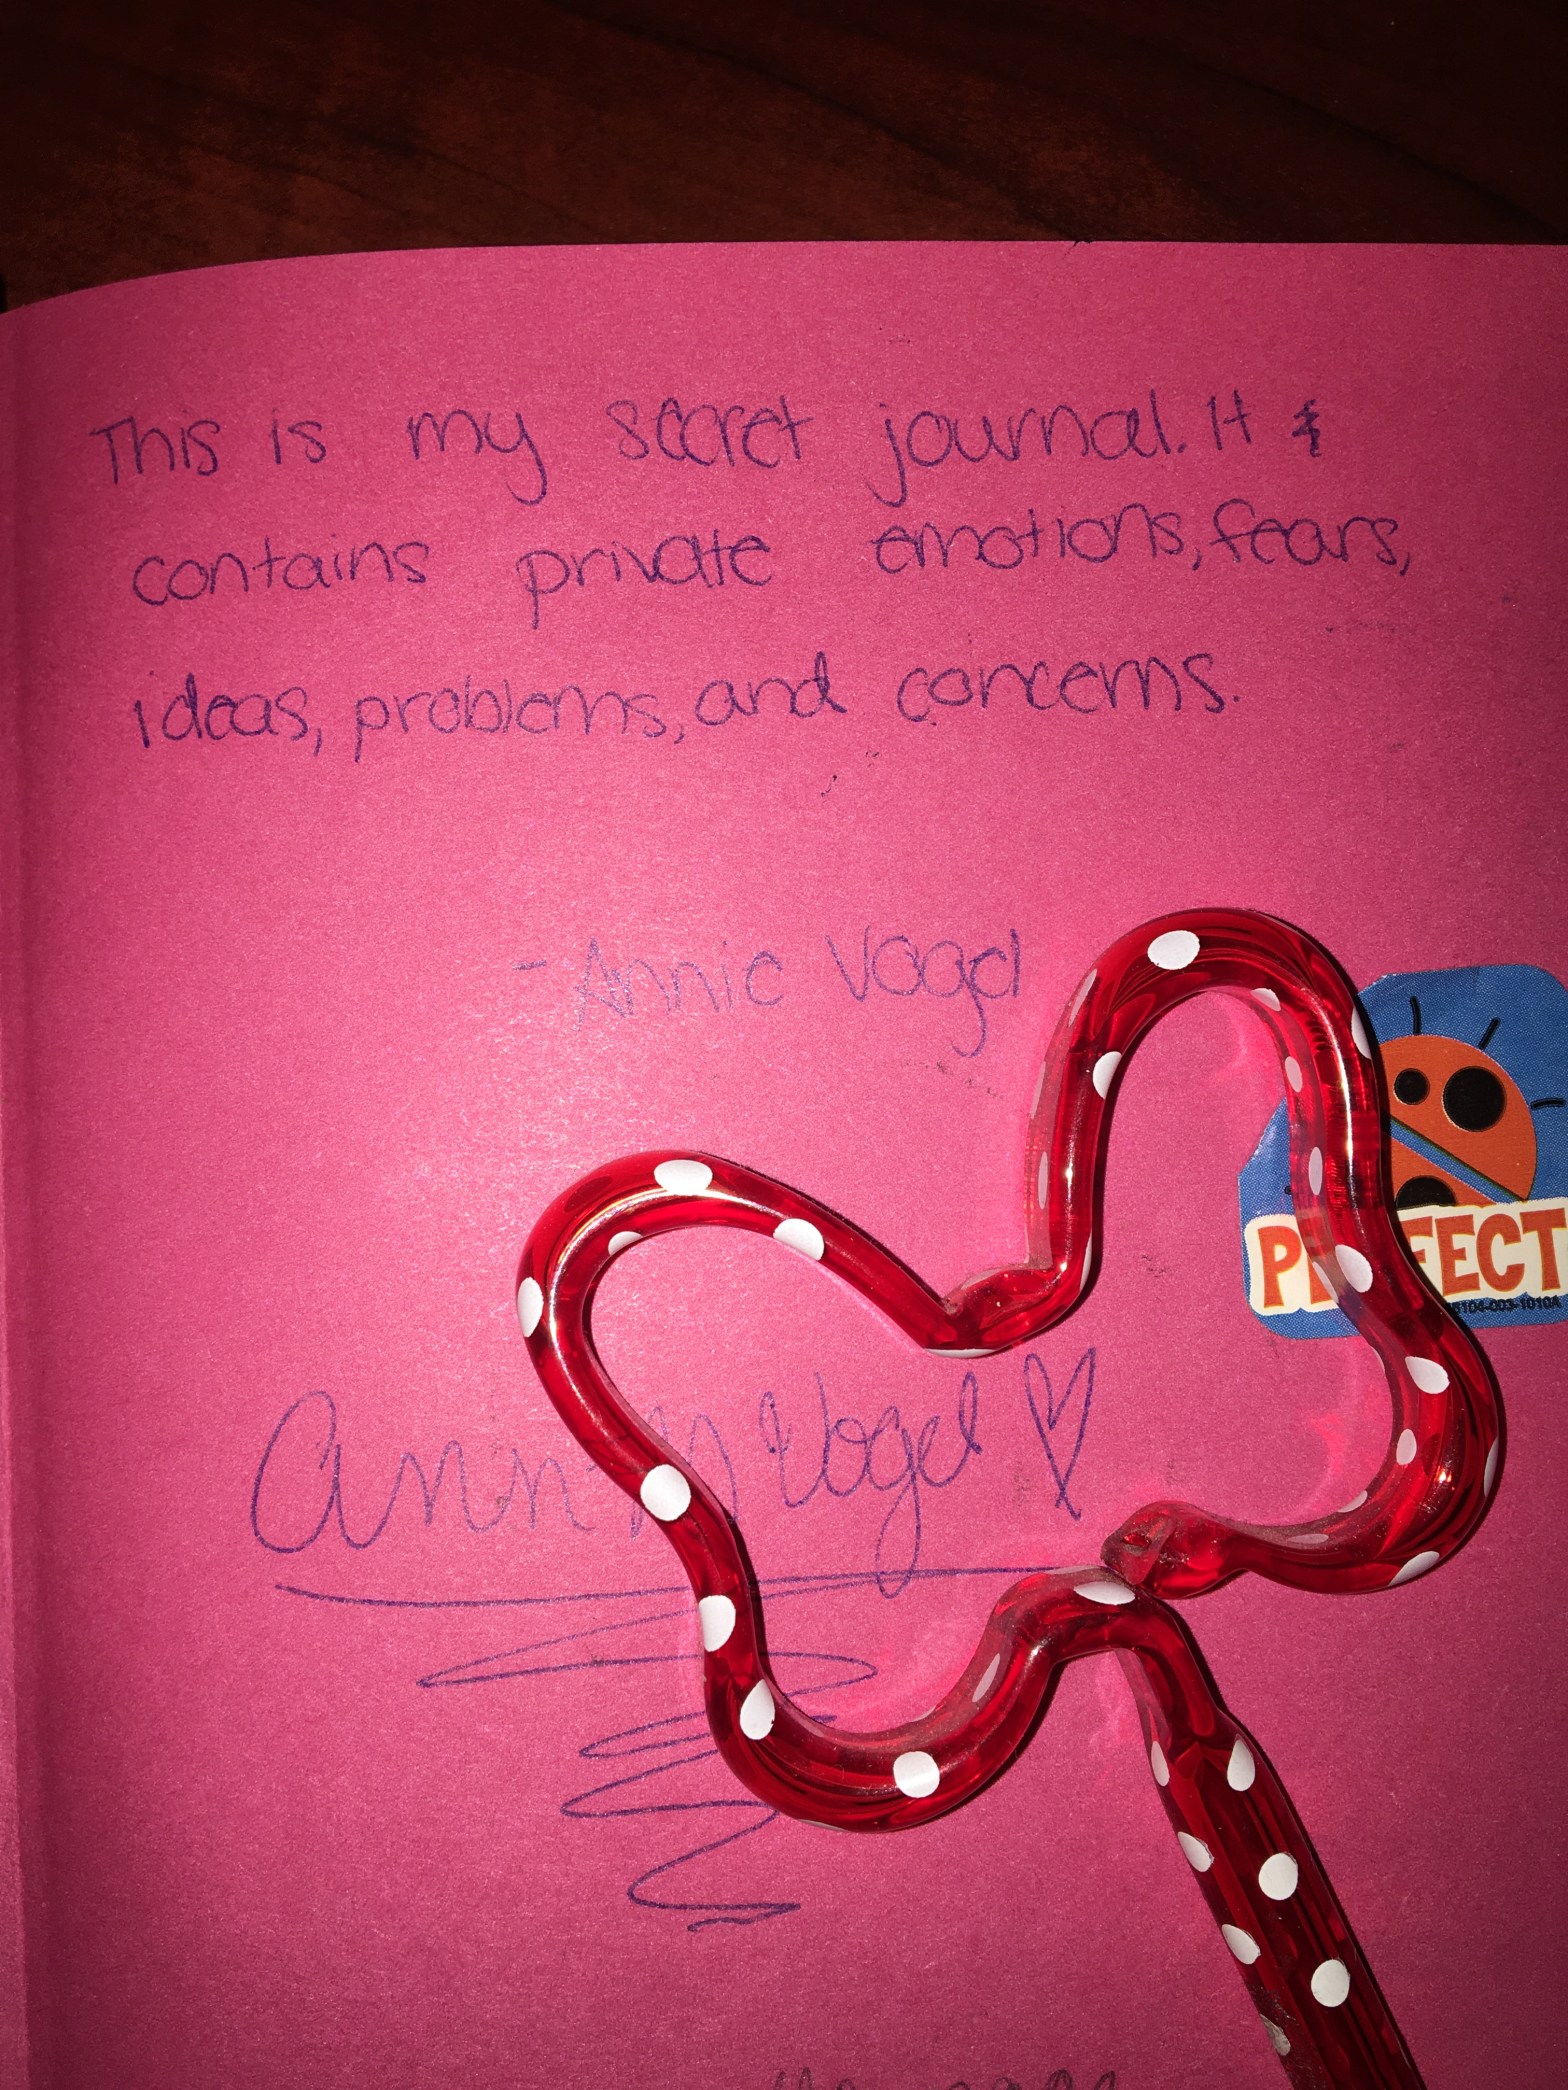 This is my secret journal. It
contains private emotions, fears,
ideas, problems, and concerns.
- Annie Vogel
PERFECT
6104-003-1010A
Ann M Vogel ♡